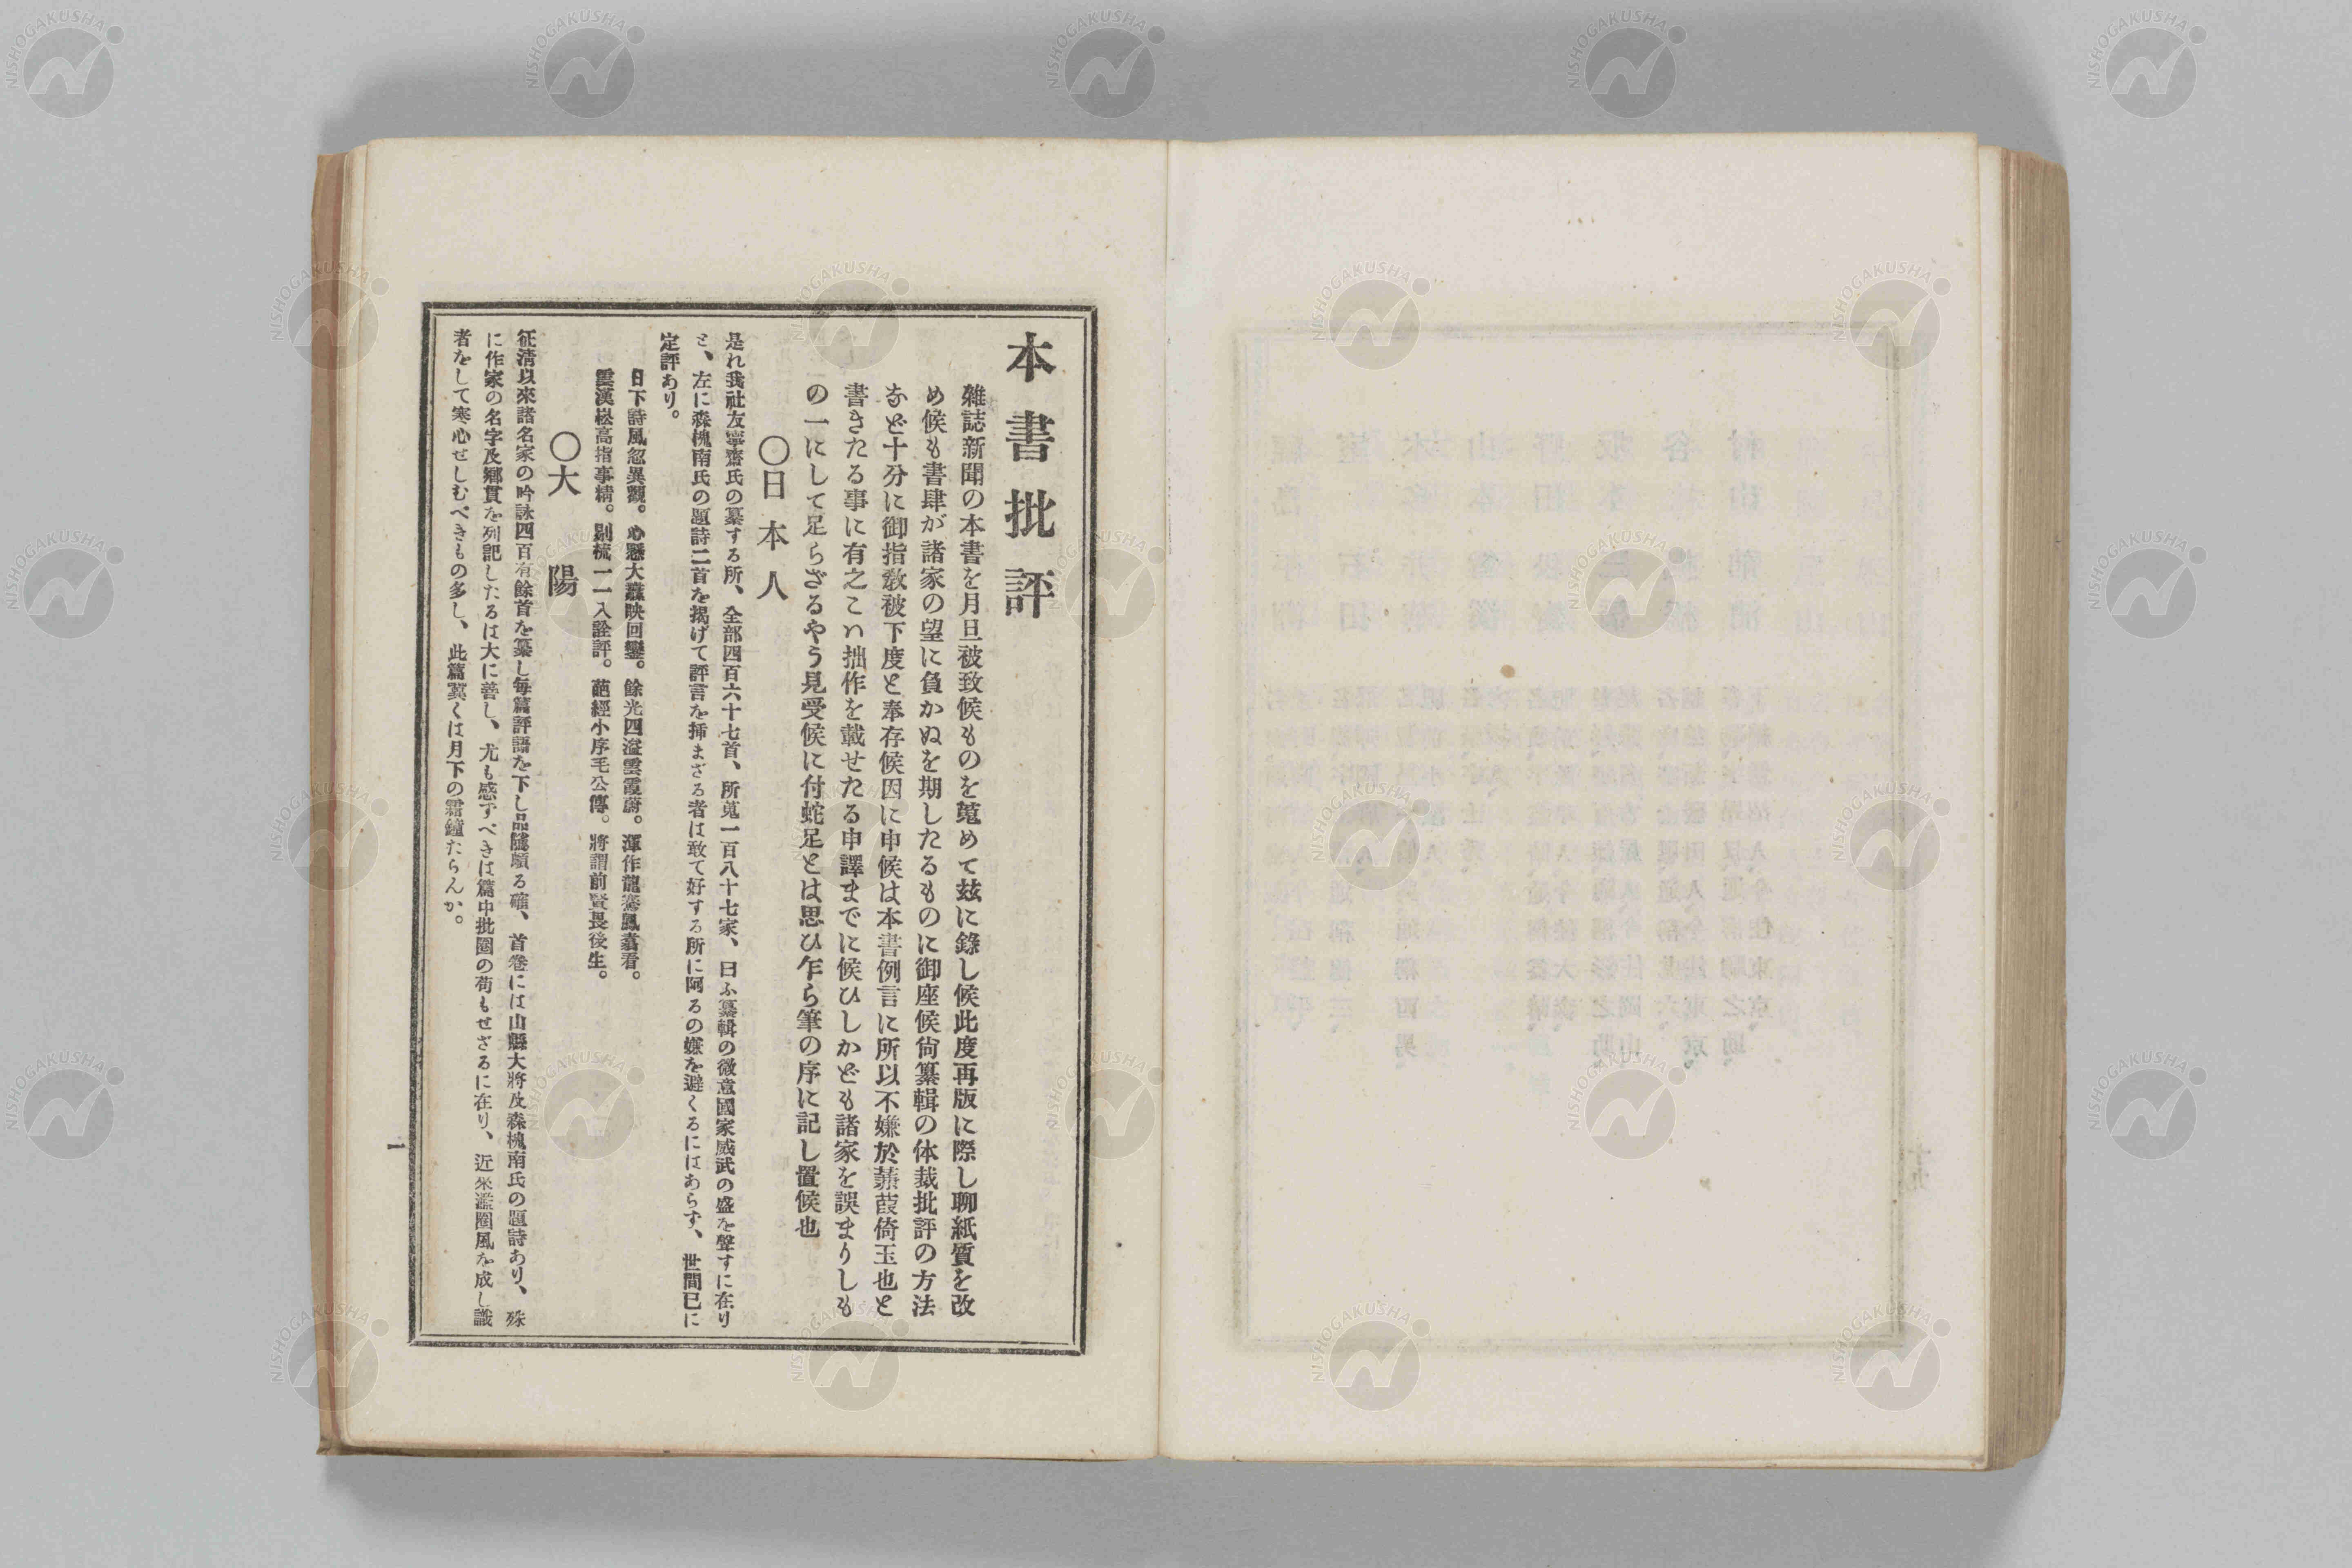 本書批評
雜誌新聞の本書を月旦被致候ものを蒐めて玆に錄し候此度再版に際し聊紙質を改
め候も書肆が諸家の望に負かぬを期したるものに御座候尙纂輯の体裁批評の方法
など十分に御指敎被下度と奉存候因に申候は本書例言に所以不嫌於蒹葭倚玉也と
書きたる事に有之こハ拙作を載せたる申譯までに候ひしかども諸家を誤まりしも
の一にして足らざるやう見受候に付蛇足とは思ひ乍ら筆の序に記し置候也
○日本人
是れ我社友寧齋氏の纂する所、全部四百六十七首、所蒐一百八十七家、曰ふ纂輯の微意國家威武の盛を聲すに在り
と、左に森槐南氏の題詩二首を揭げて評言を挿まざる者は敢て好する所に阿るの嫌を避くるにはあらず、世間已に
定評あり。
日下詩風忽異觀。心懸大纛映回鑾。餘光四溢雲霞蔚。渾作龍騫鳳翥看。
雲漢崧高指事精。剔梳一一入詮評。葩經小序毛公傳。將謂前賢畏後生。
○大陽
征淸以來諸名家の吟詠四百有餘首を纂し每篇評語を下し品隲頗る確、首卷には山縣大將及森槐南氏の題詩あり、殊
に作家の名字及鄕貫を列記したるは大に善し、尤も感ずべきは篇中批圈の苟もせざるに在り、近來濫圈風を成し識
者をして寒心せしむべきもの多し、此篇冀くは月下の霜鐘たらんか。
一
NISHOGAKUSHA